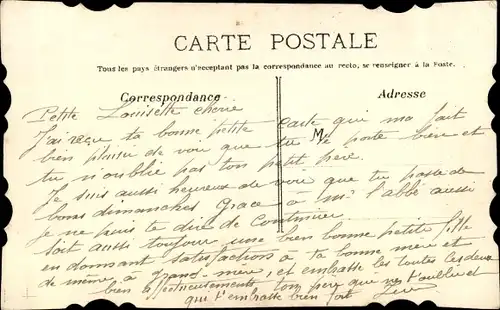 CARTE POSTALE
Tous les pays étrangers n'acceptant pas la correspondance au recto, se renseigner à la Poste.
Correspondance
Adresse
M
Petite Louisette cherie
J'ai reçue ta bonne petite carte qui ma fait
bien plaisir de voir que tu te porte bien et
tu n'oublie pas ton petit pere.
Je suis aussi heureux de voir que tu passe de
bons dimanches Grace a mr l'abbé aussi
Je ne puis te dire de continuer
soit aussi toujour une bien bonne petite fille
en donnant satisfactions a ta bonne mère et
de meme à grand-mère, et embrasse les toutes les deux
bien affectueusements ton pere que ne t'oublie et
qui t'embrasse bien fort